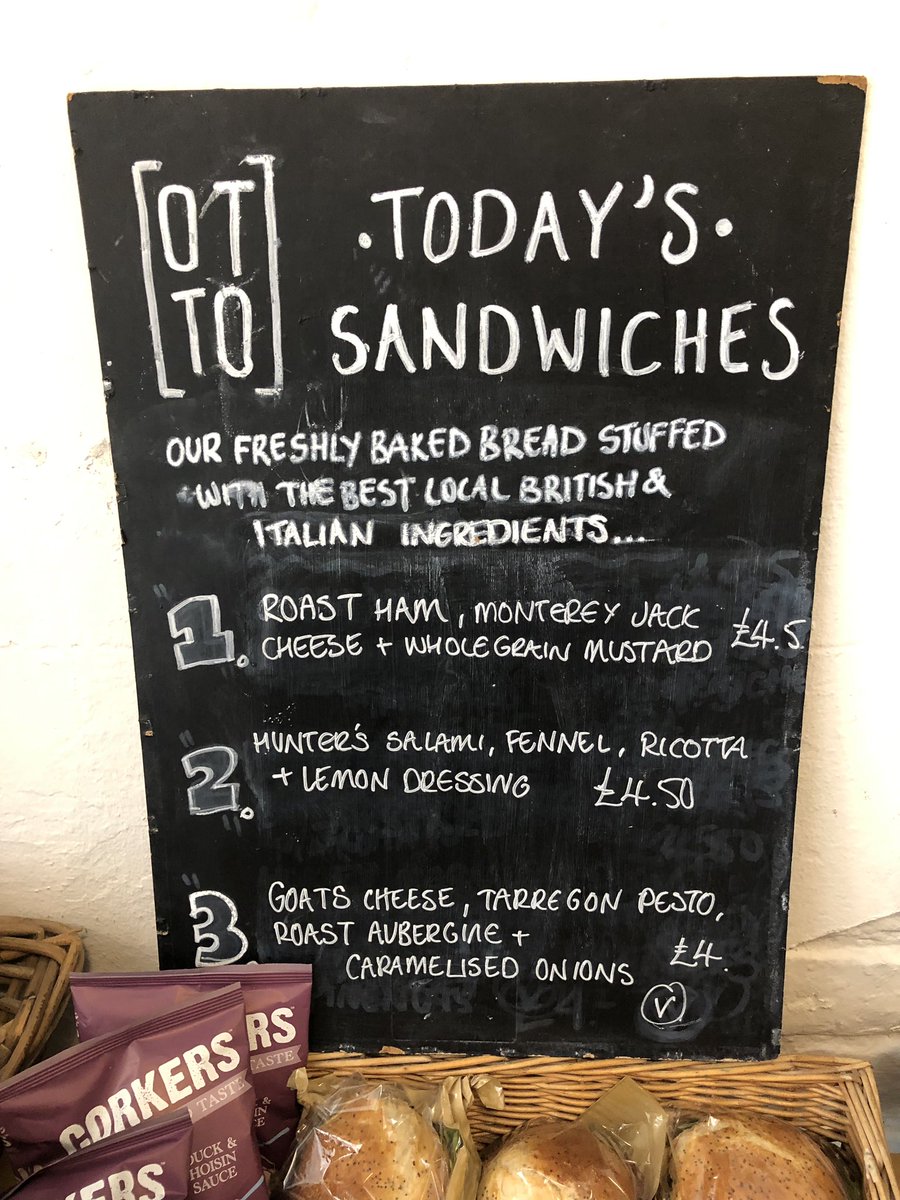 [OT
TO]
·TODAY'S·
SANDWICHES
OUR FRESHLY BAKED BREAD STUFFED
WITH THE BEST LOCAL BRITISH &
ITALIAN INGREDIENTS...
1. ROAST HAM, MONTEREY JACK
CHEESE + WHOLEGRAIN MUSTARD £4.5
2. HUNTER'S SALAMI, FENNEL, RICOTTA
+ LEMON DRESSING £4.50
3. GOATS CHEESE, TARREGON PESTO,
ROAST AUBERGINE +
CARAMELISED ONIONS £4.
V
RS
TASTE
CORKERS
TASTE
DUCK &
HOISIN
SAUCE
KERS